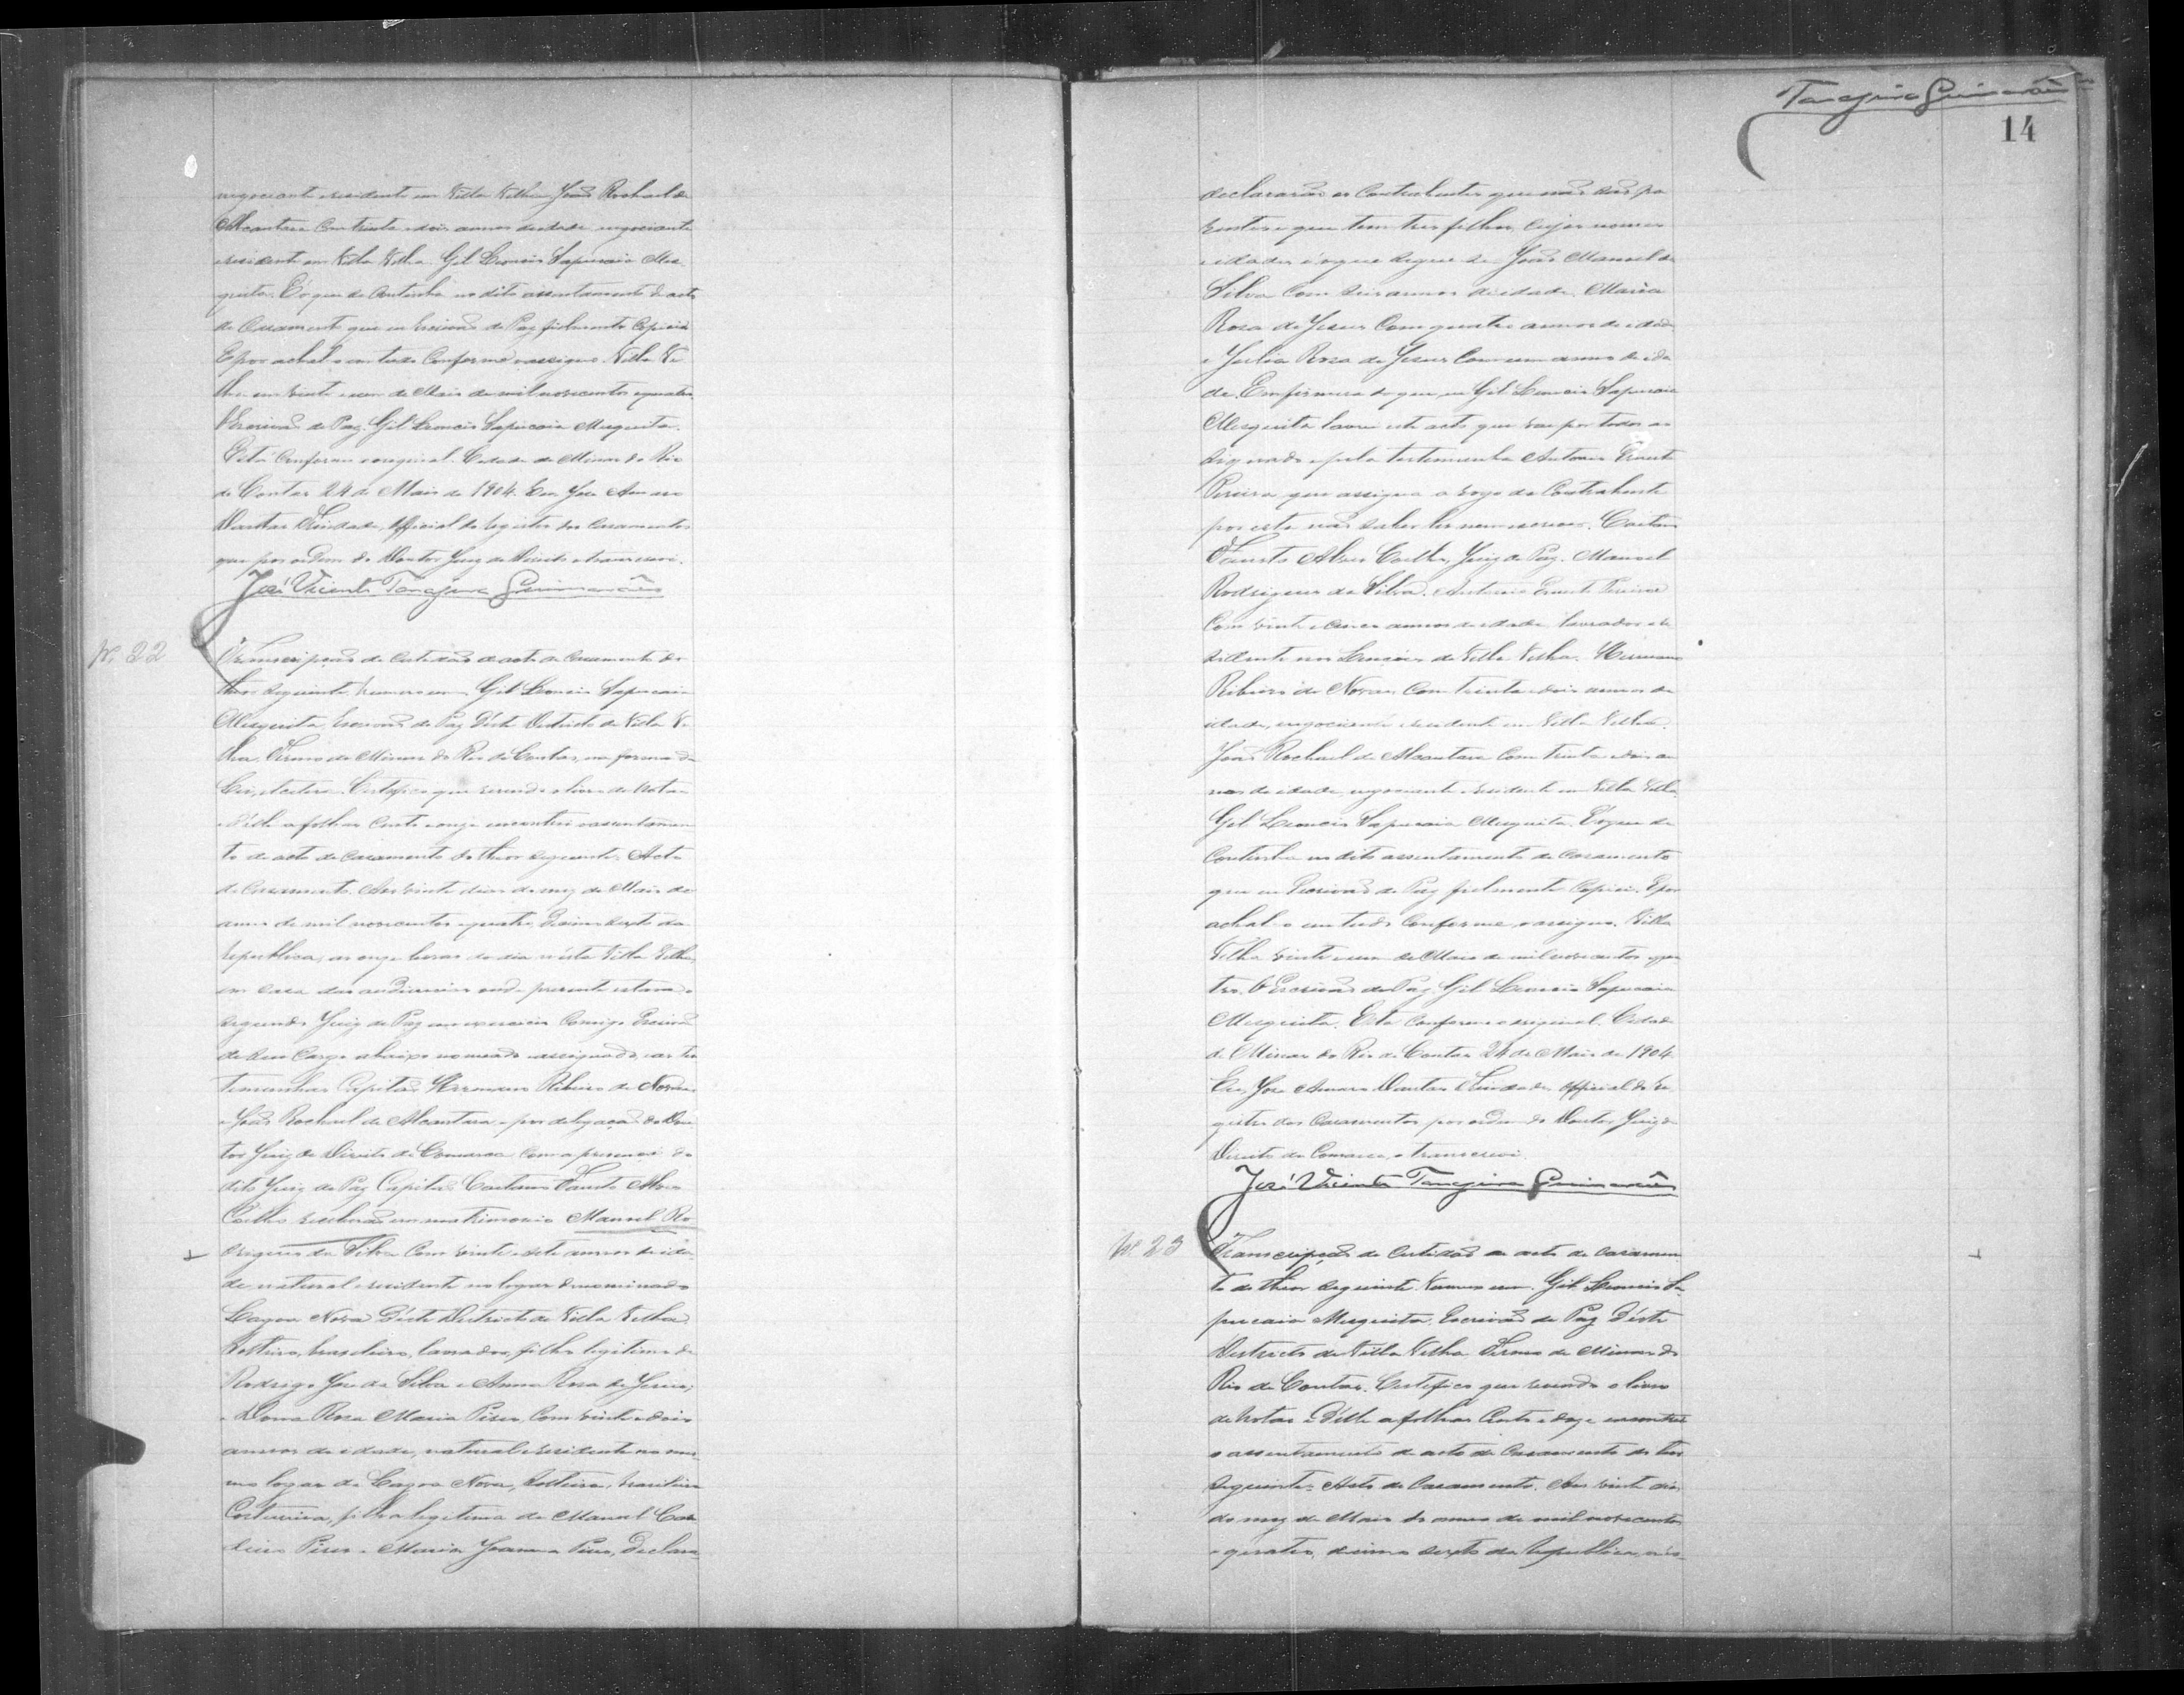 negociante residente em Villa Velha João Rochael de
Alcantara com trinta e dois annos de idade negociante
e residente em Villa Velha. Gil Leoncio Sapucaia Mes-
quita. E'o que se continha no dito assentamento de acto
de Casamento que eu Escrivão de Paz fielmente copiei
E por achal-o em tudo conforme o assigno. Villa Ve-
lha em vinte e um de Maio de mil novecentos e quatro.
O Escrivão de Paz. Gil Leoncio Sapucaia Mesquita.
Está conforme o original. Cidade de Minas do Rio
de Contas 24 de Maio de 1904. Eu, José Amaro
Dantas Trindade, Official do registro dos Casamentos
que por ordem do Doutor Juiz de Direito o transcrevi.
José Vicente Tanajura Guimarães
Nº 22
Transcripção da Certidão do acto de Casamento do
theor seguinte. Numero um. Gil Leoncio Sapucaia
Mesquita, Escrivão de Paz d'este Districto de Villa Ve-
lha, Termo de Minas do Rio de Contas, na forma da
Lei, etcetera. Certifico que revendo o livro de Notas
e d'elle a folhas cento e onze encontrei o assentamen-
to do acto de casamento do theor seguinte: Acto
de Casamento. Aos vinte dias do mez de Maio do
anno de mil novecentos e quatro, decimo sexto da
republica, as onze horas do dia n'esta Villa Velha,
em casa das audiencias onde presente estava o
segundo Juiz de Paz em exercicio comigo Escrivão
de seu Cargo abaixo nomeado e assignado, e as tes-
temunhas Capitão Hermano Ribeiro de Novaes
e João Rochael de Alcantara e por delegação do Dou-
tor Juiz de Direito da Comarca com a presença do
dito Juiz de Paz Capitão Caetano Fausto Alves
Coelho receberão em matrimonio Manoel Ro-
drigues da Silva com vinte e sete annos de ida-
de, natural e residente no logar denominado
Lagoa Nova d'este Districto de Villa Velha
solteiro, brasileiro, lavrador, filho legitimo de
Rodrigo José da Silva e Anna Rosa de Jesus;
e Dona Rosa Maria Pires, com vinte e dois
annos de idade, natural e residente no mes-
mo logar da Lagoa Nova, solteira, brasileira
Costureira, filha legitima de Manoel
Pires e Maria Joanna Pires, declara-
Tanajura Guimarães
14
declararão os contrahentes que não são pa-
rentes e que tem tres filhos, cujos nomes
e idades é o que segue-se João Manoel da
Silva com seis annos de idade, Maria
Rosa de Jesus com quatro annos de idade
e Julia Rosa de Jesus com um anno de ida-
de. Em firmeza do que eu Gil Leoncio Sapucaia
Mesquita lavrei este acto que vae por todos as-
signado e pela testemunha Antonio Ernesto
Pereira que assigna a rogo da Contrahente
por esta não saber ler nem escrever. Caetano
Fausto Alves Coelho, Juiz de Paz. Manoel
Rodrigues da Silva. Antonio Ernesto Pereira
com vinte e cinco annos de idade, lavrador e re-
sidente nos Lençóes de Villa Velha. Hermano
Ribeiro de Novaes com trinta e dois annos de
idade, negociante e residente em Villa Velha.
João Rochael de Alcantara com trinta e dois an-
nos de idade, negociante e residente em Villa Velha.
Gil Leoncio Sapucaia Mesquita. E'o que se
continha no dito assentamento de casamento
que eu Escrivão de Paz fielmente copiei. E por
achal-o em tudo conforme, o assigno. Villa
Velha vinte e um de Maio de mil novecentos e qua-
tro. O Escrivão de Paz. Gil Leoncio Sapucaia
Mesquita. Está conforme o original. Cidade
de Minas do Rio de Contas 24 de Maio de 1904
Eu, José Amaro Dantas Trindade, Official do re-
gistro dos Casamentos por ordem do Doutor Juiz de
Direito da Comarca, o transcrevi.
José Vicente Tanajura Guimarães
Nº 23
Transcripção da Certidão do acto de casamen-
to do theor seguinte. Numero um. Gil Leoncio Sa-
pucaia Mesquita, Escrivão de Paz d'este
Districto de Villa Velha Termo de Minas do
Rio de Contas. Certifico que revendo o livro
de Notas e d'elle a folhas cento e doze encontrei
o assentamento do acto de casamento do theor
seguinte: Acto de Casamento. Aos vinte dias
do mez de Maio do anno de mil novecentos
e quatro, decimo sexto da republica, n'es-